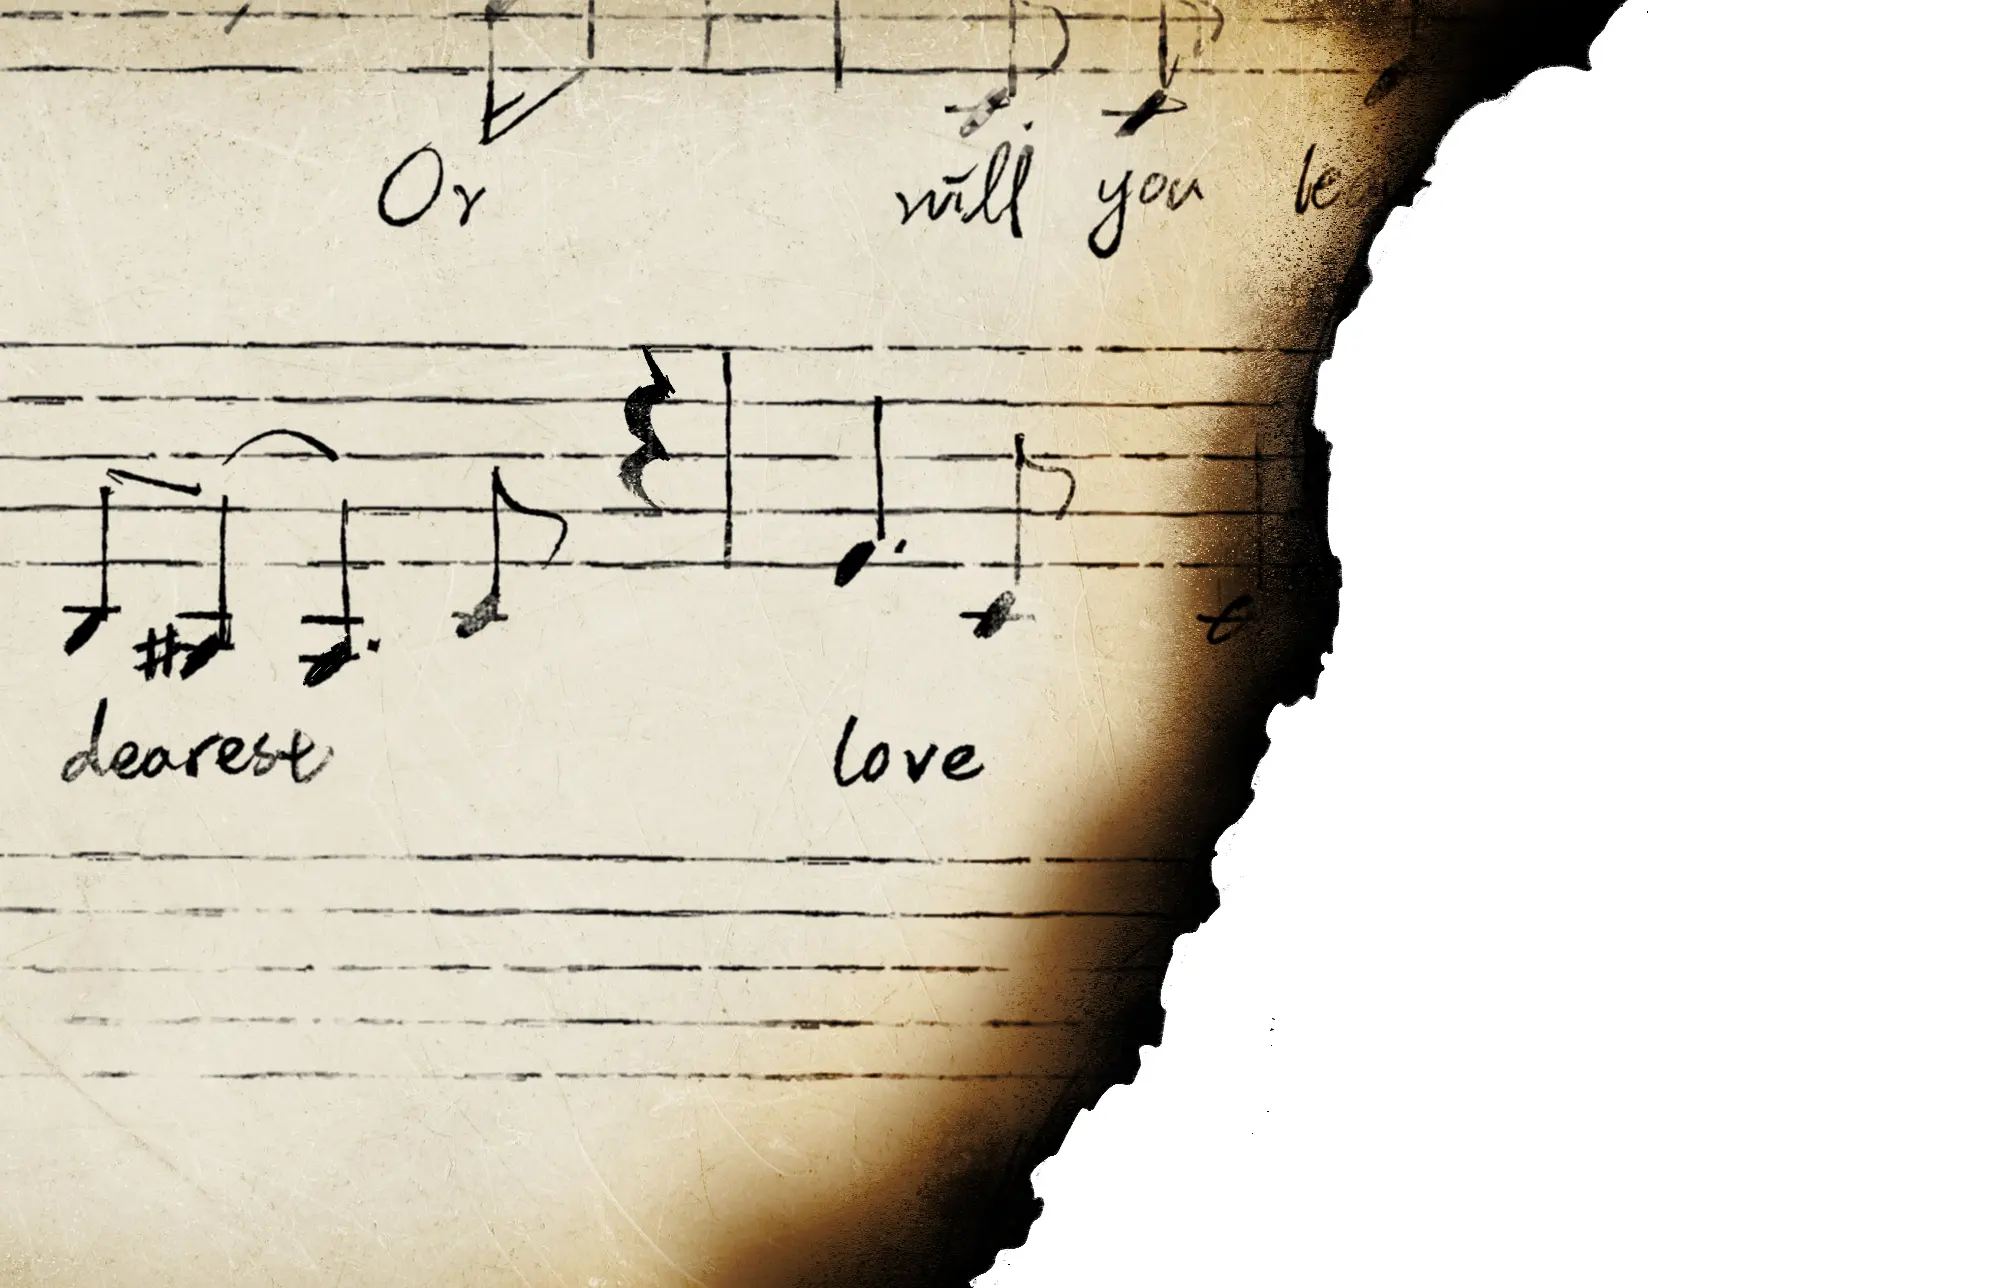 Or will you
dearest love